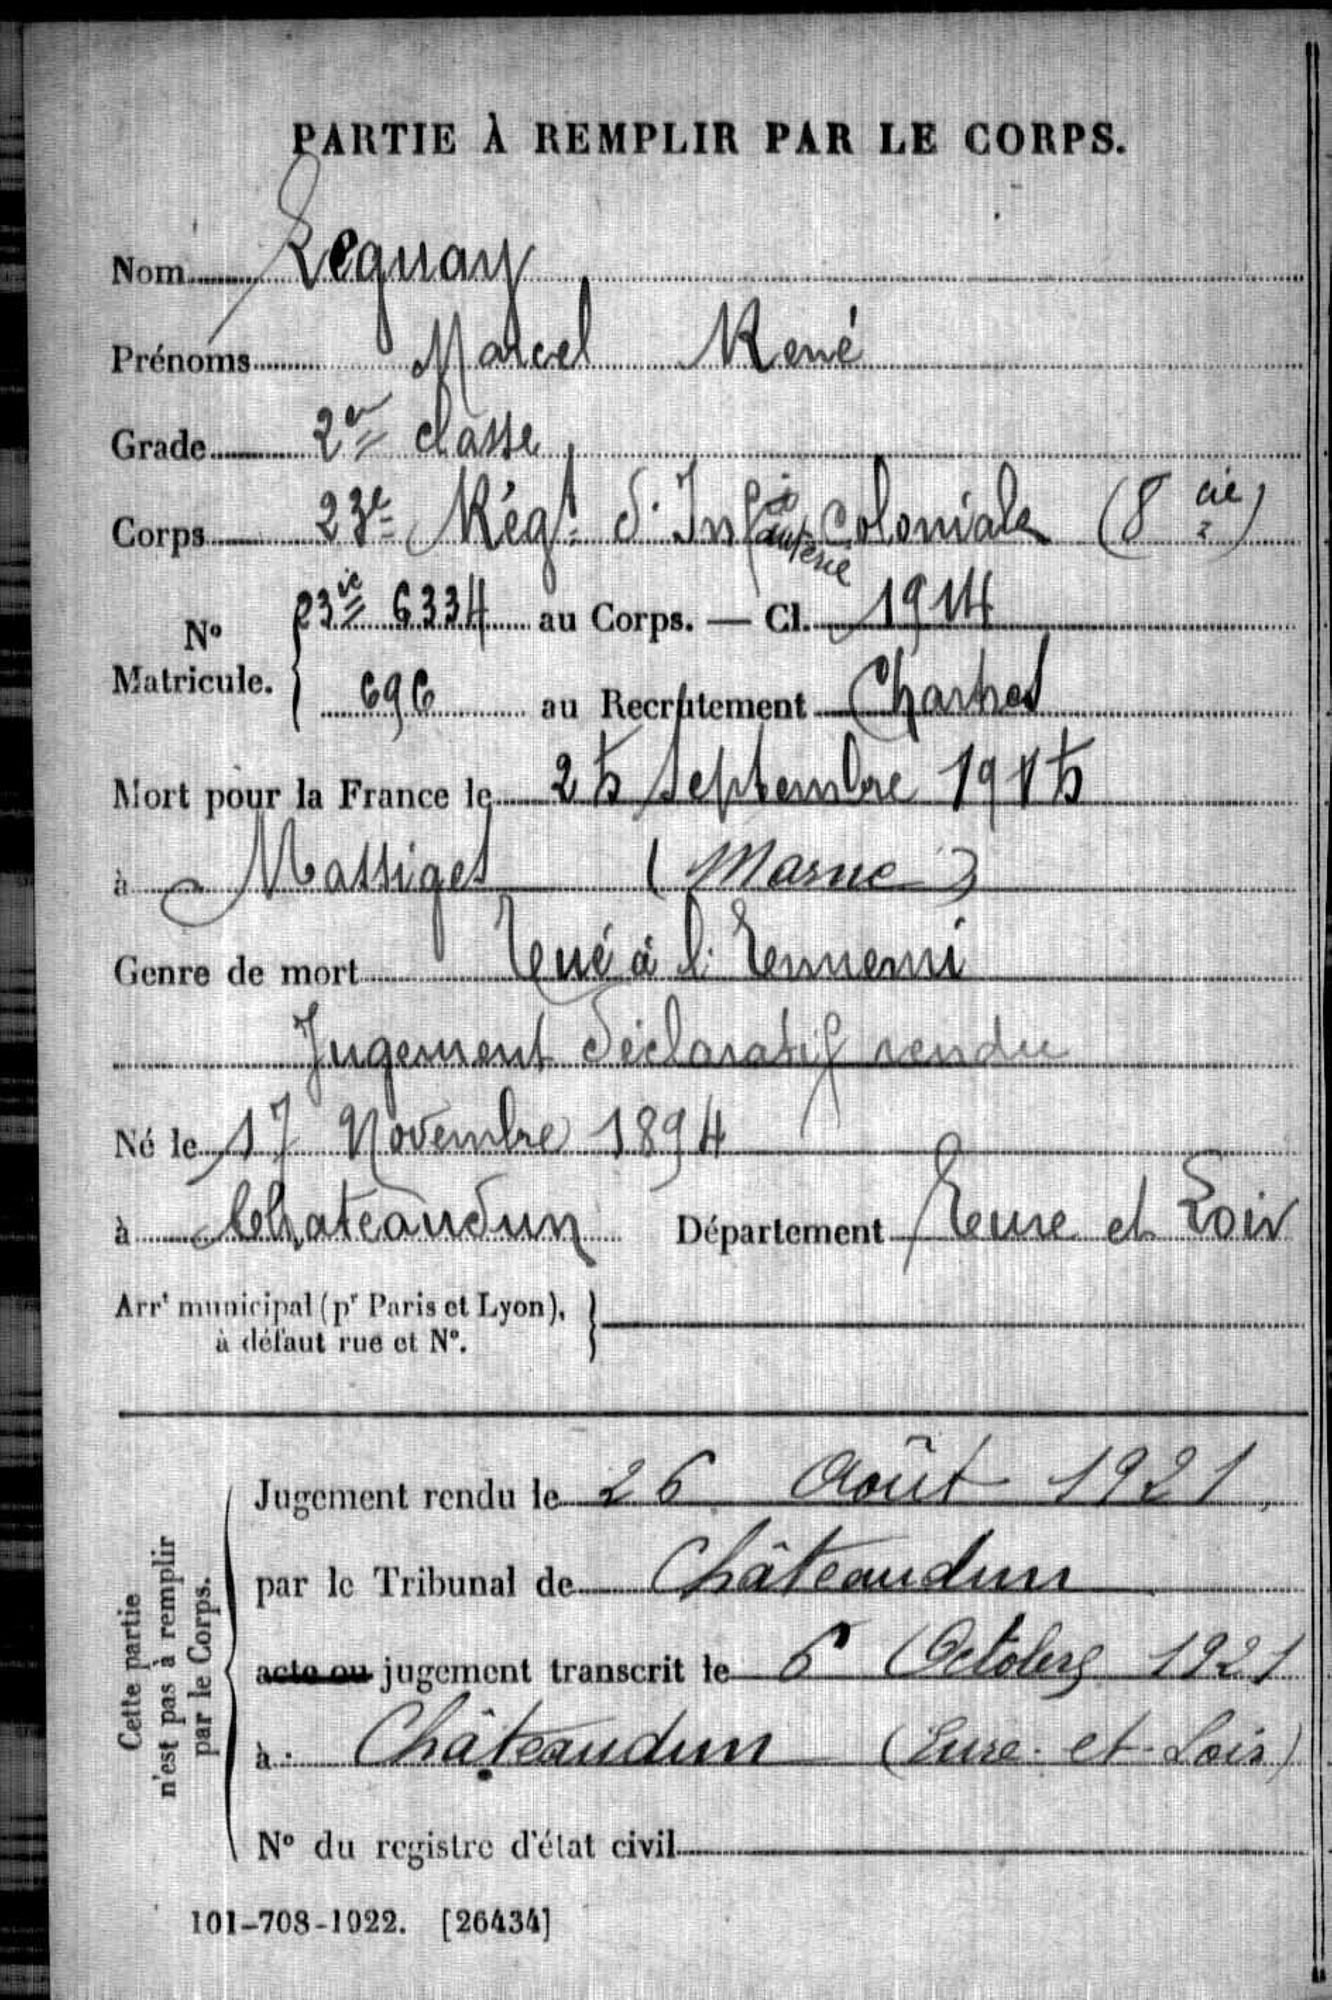 PARTIE À REMPLIR PAR LE CORPS.
Nom Leguay
Prénoms Marcel René
Grade 2e classe
Corps 23e Régt d'Infanterie coloniale (8 cie)
No Matricule. 23ie 6334 au Corps. — Cl. 1914
696 au Recrutement Chartres
Mort pour la France le 25 Septembre 1915
à Massiges (Marne)
Genre de mort Tué à l'Ennemi
Jugement déclaratif rendu
Né le 17 Novembre 1894
à Chateaudun Département Eure et Loir
Arrt municipal (pr Paris et Lyon),
à défaut rue et No.
Cette partie
n'est pas à remplir
par le Corps.
Jugement rendu le 26 Août 1921
par le Tribunal de Châteaudun
acte ou jugement transcrit le 6 Octobre 1921
à Châteaudun (Eure-et-Loir)
No du registre d'état civil
101-708-1922. [26434]